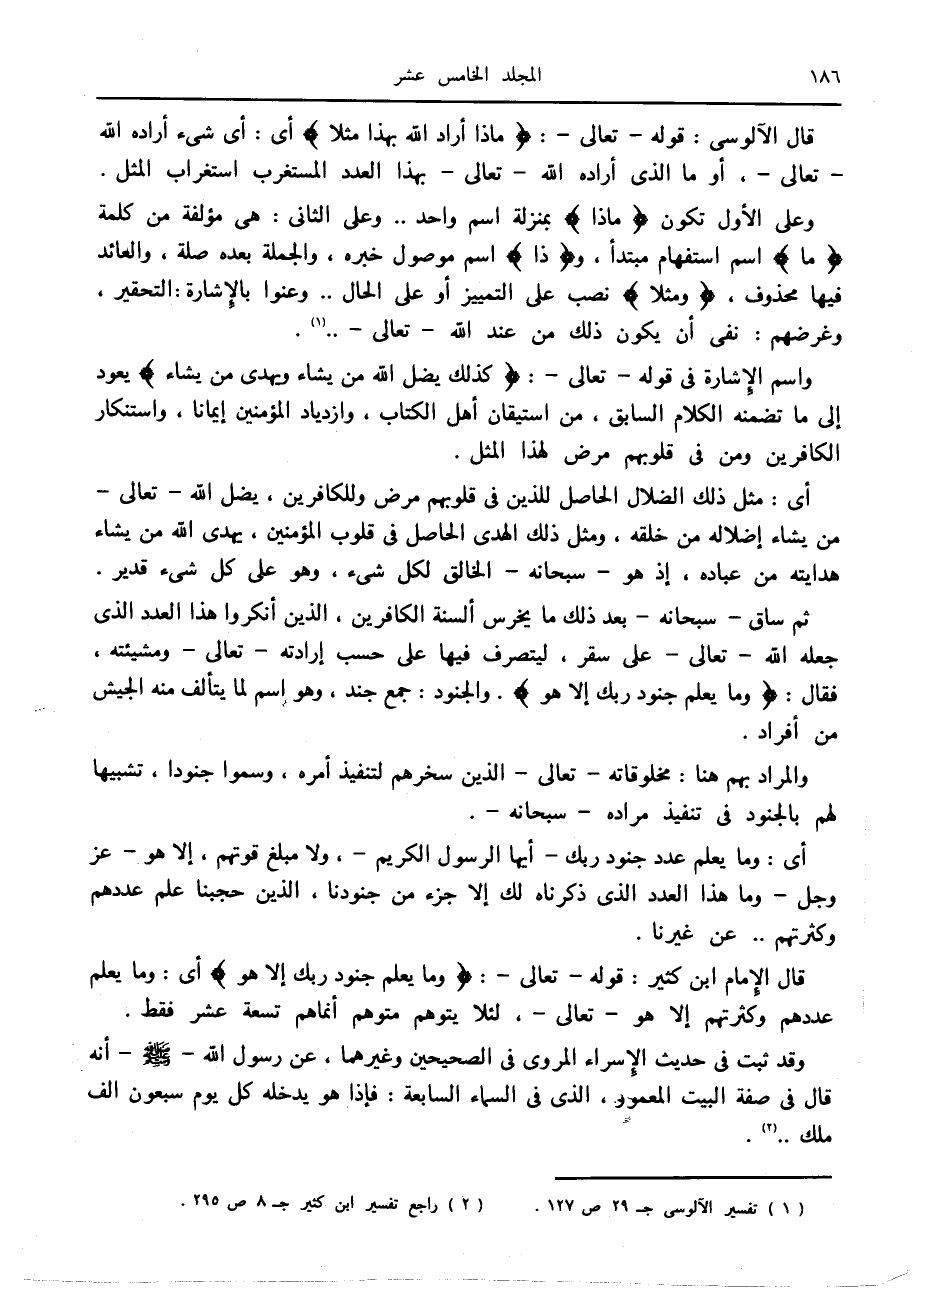 ١٨٦ المجلد الخامس عشر
قال الآلوسى : قوله – تعالى – : ﴿ ماذا أراد الله بهذا مثلا ﴾ أى : أى شىء أراده الله
– تعالى – ، أو ما الذى أراده الله – تعالى – بهذا العدد المستغرب استغراب المثل .
وعلى الأول تكون ﴿ ماذا ﴾ بمنزلة اسم واحد .. وعلى الثانى : هى مؤلفة من كلمة
﴿ ما ﴾ اسم استفهام مبتدأ ، و﴿ ذا ﴾ اسم موصول خبره ، والجملة بعده صلة ، والعائد
فيها محذوف ، ﴿ ومثلا ﴾ نصب على التمييز أو على الحال .. وعنوا بالإشارة : التحقير ،
وغرضهم : نفى أن يكون ذلك من عند الله – تعالى – ..(١) .
واسم الإشارة فى قوله – تعالى – : ﴿ كذلك يضل الله من يشاء ويهدى من يشاء ﴾ يعود
إلى ما تضمنه الكلام السابق ، من استيقان أهل الكتاب ، وازدياد المؤمنين إيمانا ، واستنكار
الكافرين ومن فى قلوبهم مرض لهذا المثل .
أى : مثل ذلك الضلال الحاصل للذين فى قلوبهم مرض وللكافرين ، يضل الله – تعالى –
من يشاء إضلاله من خلقه ، ومثل ذلك الهدى الحاصل فى قلوب المؤمنين ، يهدى الله من يشاء
هدايته من عباده ، إذ هو – سبحانه – الخالق لكل شىء ، وهو على كل شىء قدير .
ثم ساق – سبحانه – بعد ذلك ما يخرس ألسنة الكافرين ، الذين أنكروا هذا العدد الذى
جعله الله – تعالى – على سقر ، ليتصرف فيها على حسب إرادته – تعالى – ومشيئته ،
فقال : ﴿ وما يعلم جنود ربك إلا هو ﴾ . والجنود : جمع جند ، وهو إسم لما يتألف منه الجيش
من أفراد .
والمراد بهم هنا : مخلوقاته – تعالى – الذين سخرهم لتنفيذ أمره ، وسموا جنودا ، تشبيها
لهم بالجنود فى تنفيذ مراده – سبحانه – .
أى : وما يعلم عدد جنود ربك – أيها الرسول الكريم – ، ولا مبلغ قوتهم ، إلا هو – عز
وجل – وما هذا العدد الذى ذكرناه لك إلا جزء من جنودنا ، الذين حجبنا علم عددهم
وكثرتهم .. عن غيرنا .
قال الإمام ابن كثير : قوله – تعالى – : ﴿ وما يعلم جنود ربك إلا هو ﴾ أى : وما يعلم
عددهم وكثرتهم إلا هو – تعالى – ، لئلا يتوهم متوهم أنماهم تسعة عشر فقط .
وقد ثبت فى حديث الإسراء المروى فى الصحيحين وغيرهما ، عن رسول الله – ﷺ – أنه
قال فى صفة البيت المعمور ، الذى فى السماء السابعة : فإذا هو يدخله كل يوم سبعون الف
ملك ..(٢) .
( ١ ) تفسير الآلوسى جـ ٢٩ ص ١٢٧ . ( ٢ ) راجع تفسير ابن كثير جـ ٨ ص ٢٩٥ .